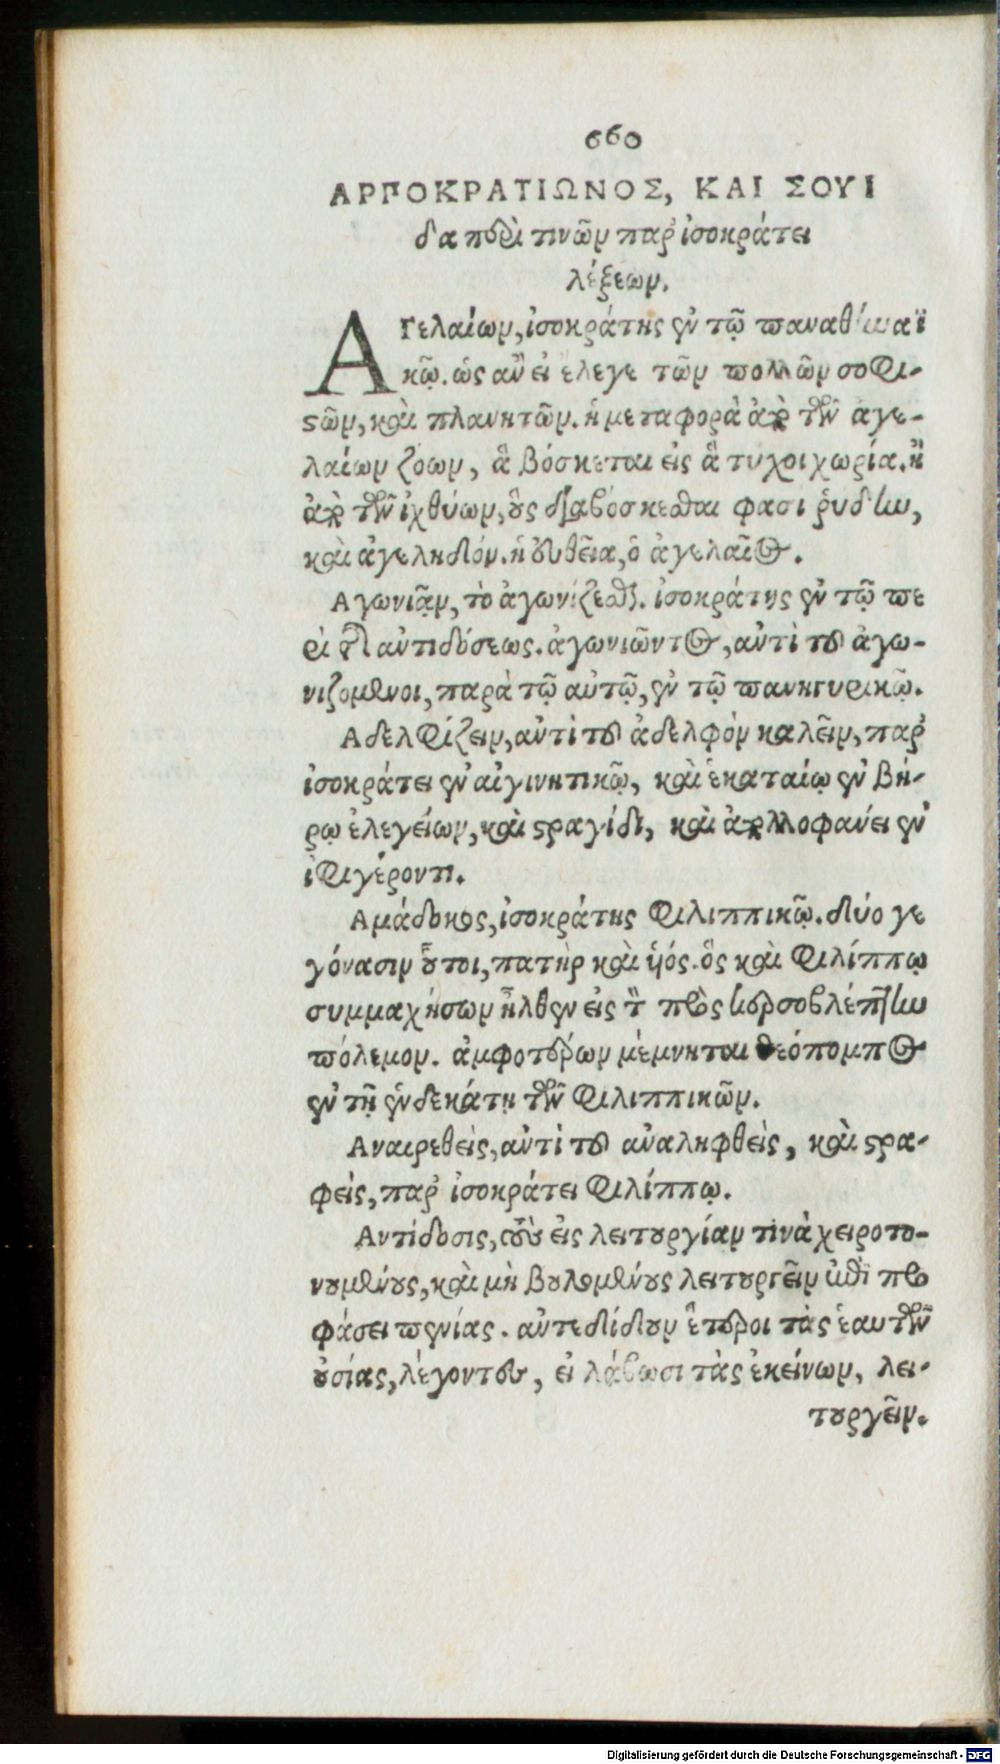 660
ΑΡΠΟΚΡΑΤΙΩΝΟΣ, ΚΑΙ ΣΟΥΙ
δα περὶ τινῶν παρ' ἰσοκράτει
λέξεων.
Αγελαίων, ἰσοκράτης ἐν τῷ παναθηναϊ
κῷ. ὡς ἂν εἰ ἔλεγε τῶν πολλῶν σοφι-
στῶν, καὶ πλανητῶν. ἡ μεταφορὰ ἀπὸ τῶν ἀγε-
λαίων ζώων, ἃ βόσκεται εἰς ἃ τύχοι χωρία. ἢ
ἀπὸ τῶν ἰχθύων, οὓς διαβόσκεσθαι φασι ῥύδην,
καὶ ἀγεληδόν. ἡ εὐθεῖα, ὁ ἀγελαῖος.
Αγωνιᾶν, τὸ ἀγωνίζεσθαι. ἰσοκράτης ἐν τῷ πε
ρὶ τῆς ἀντιδόσεως. ἀγωνιῶντος, ἀντὶ τοῦ ἀγω-
νιζόμενοι, παρὰ τῷ αὐτῷ, ἐν τῷ πανηγυρικῷ.
Αδελφίζειν, ἀντὶ τοῦ ἀδελφὸν καλεῖν, παρ'
ἰσοκράτει ἐν αἰγινητικῷ, καὶ ἑκαταίῳ ἐν βή-
ρῳ ἐλεγείων, καὶ στραγίδι, καὶ ἀπολλοφανεί ἐν
ἰφιγέροντι.
Αμάδοκος, ἰσοκράτης φιλιππικῷ. δύο γε
γόνασιν οὗτοι, πατὴρ καὶ υἱός. ὃς καὶ φιλίππῳ
συμμαχήσων ἦλθεν εἰς τὸν πρὸς κερσοβλέπτην
πόλεμον. ἀμφοτέρων μέμνηται θεόπομπος
ἐν τῇ ἑνδεκάτῃ τῶν φιλιππικῶν.
Αναιρεθεὶς, ἀντὶ τοῦ ἀναληφθεὶς, καὶ στρα-
φεὶς, παρ' ἰσοκράτει φιλίππῳ.
Αντίδοσις, τοὺς εἰς λειτουργίαν τινὰ χειροτο-
νουμένους, καὶ μὴ βουλομένους λειτουργεῖν ἐπὶ προ
φάσει πενίας. ἀντεδίδουν ἕτεροι τὰς ἑαυτῶν
οὐσίας, λέγοντες, εἰ λάβωσι τὰς ἐκείνων, λει-
τουργεῖν.